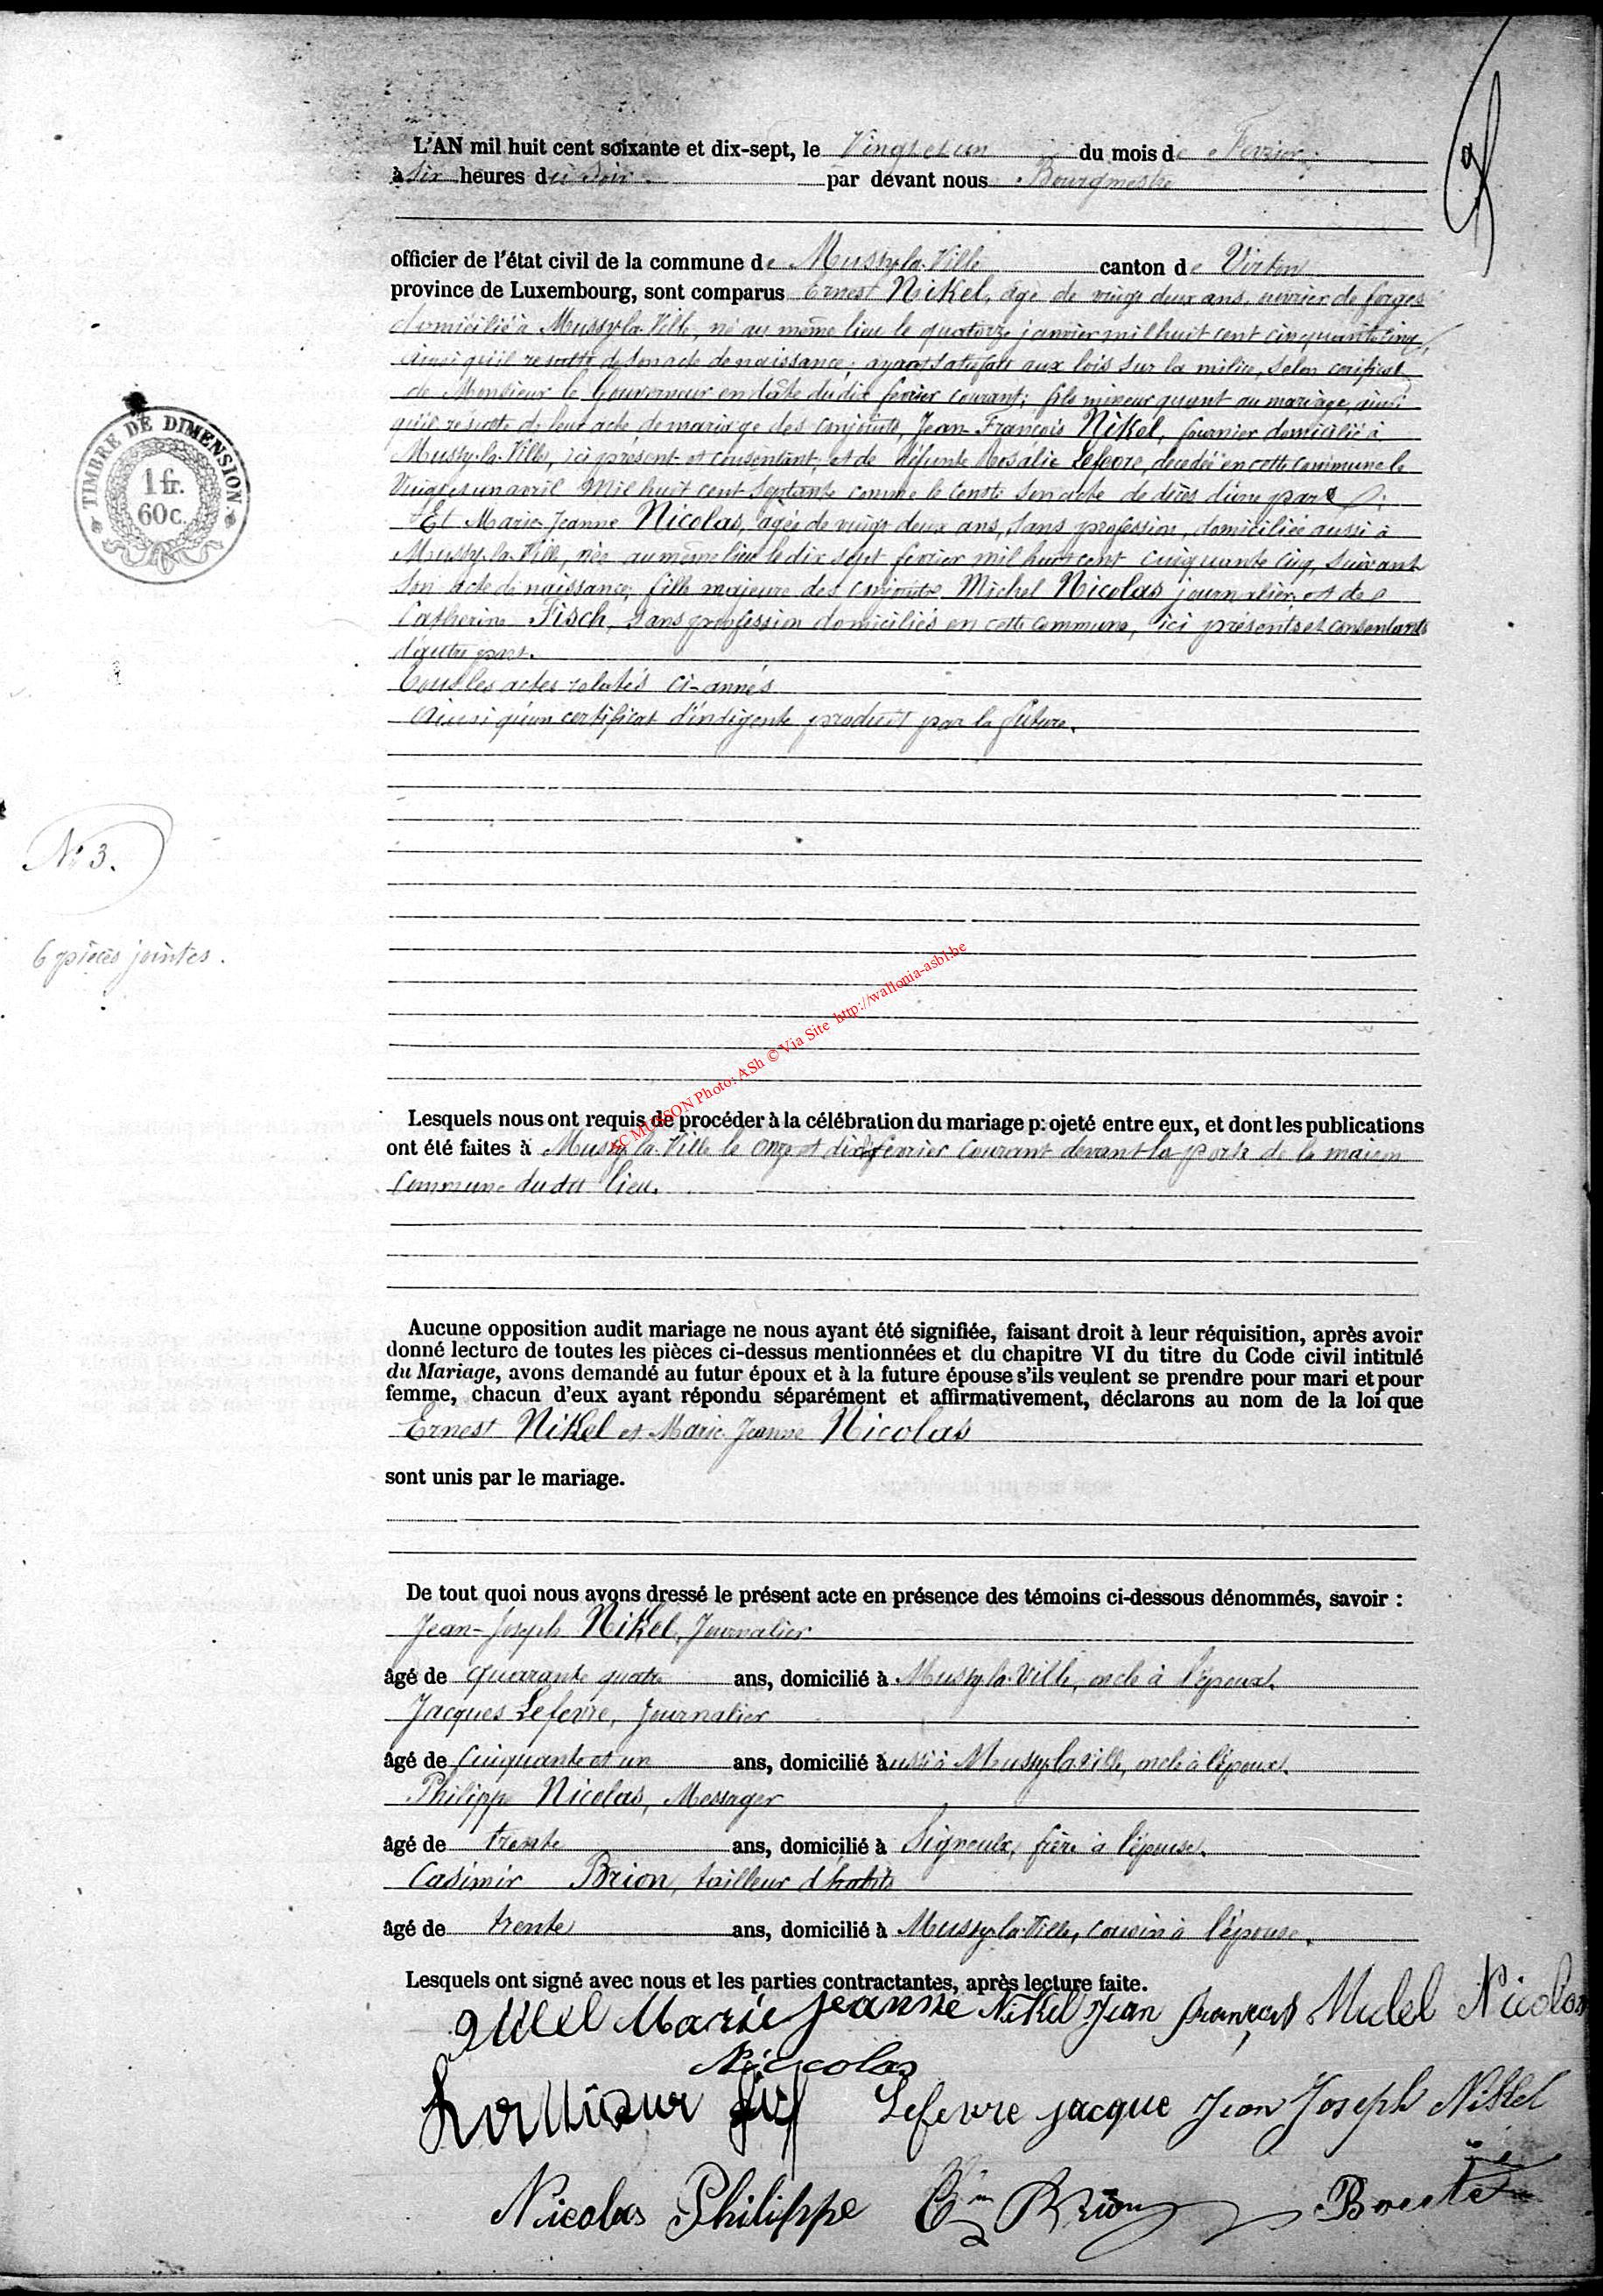 L'AN mil huit cent soixante et dix-sept, le Vingt et un du mois de Fevrier
à six heures du soir par devant nous Bourgmestre
officier de l'état civil de la commune de Mussy-la-Ville canton de Virton
province de Luxembourg, sont comparus Ernest Nikel, âgé de vingt deux ans, ouvrier de forges
domicilié à Mussy-la-Ville, né au même lieu le quatorze janvier mil huit cent cinquante cinq,
ainsi qu'il resulte de son acte de naissance; ayant satisfait aux lois sur la milice, selon certificat
de Monsieur le Gouverneur en date du dix fevrier courant; fils mineur quant au mariage, ainsi
qu'il résulte de leur acte de mariage des conjoints, Jean-François Nikel, journier domicilié à
Mussy-la-Ville, ici présent et consentant, et de défunte Rosalie Lefevre, decedée en cette commune le
Vingt et un avril Mil huit cent Septante comme le Conste son acte de décès d'une part
Et Marie Jeanne Nicolas, âgée de vingt deux ans, sans profession, domiciliée aussi à
Mussy-la-Ville, née au même lieu le dix sept fevrier mil huit cent cinquante cinq, suivant
son acte de naissance, fille majeure des conjoints Michel Nicolas journalier et de
Catherine Fisch, sans profession domiciliés en cette commune, ici présents et consentants
d'autre part.
Tous les actes relatés ci-annés
Ainsi qu'un certificat d'indigente produit par la future.
TIMBRE DE DIMENSION
1 fr.
60c.
N° 3.
6 pièces jointes.
EC MUSSON Photo: ASh © Via Site http://wallonia-asbl.be
Lesquels nous ont requis de procéder à la célébration du mariage p: ojeté entre eux, et dont les publications
ont été faites à Mussy-la-Ville le onze et dix fevrier courant devant la porte de la maison
Commune du dit lieu.
Aucune opposition audit mariage ne nous ayant été signifiée, faisant droit à leur réquisition, après avoir
donné lecture de toutes les pièces ci-dessus mentionnées et du chapitre VI du titre du Code civil intitulé
du Mariage, avons demandé au futur époux et à la future épouse s'ils veulent se prendre pour mari et pour
femme, chacun d'eux ayant répondu séparément et affirmativement, déclarons au nom de la loi que
Ernest Nikel et Marie Jeanne Nicolas
sont unis par le mariage.
De tout quoi nous avons dressé le présent acte en présence des témoins ci-dessous dénommés, savoir :
Jean-Joseph Nikel, Journalier
âgé de quarante quatre ans, domicilié à Mussy-la-Ville, oncle à l'époux.
Jacques Lefevre, Journalier
âgé de Cinquante et un ans, domicilié aussi à Mussy-la-Ville, oncle à l'époux.
Philippe Nicolas, Messager
âgé de trente ans, domicilié à Signeulx, frère à l'épouse.
Casimir Brion, tailleur d'habits
âgé de trente ans, domicilié à Mussy-la-Ville, cousin à l'épouse.
Lesquels ont signé avec nous et les parties contractantes, après lecture faite.
Marie Jeanne Nikel Jean françois Michel Nicolas
Nicolas
Lefevre jacque Jean Joseph Nikel
Nicolas Philippe Brion